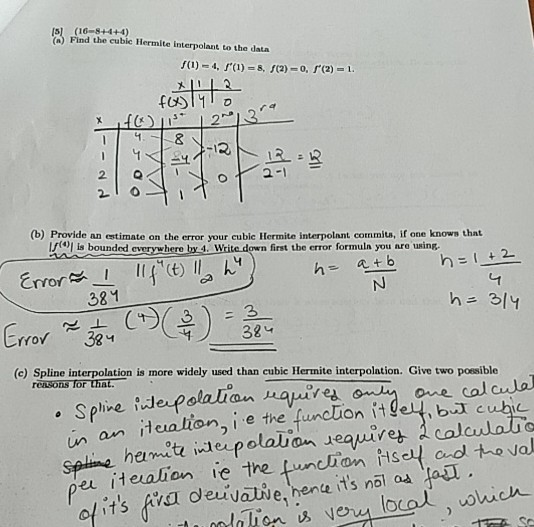 [5] (16=8+4+4)
(a) Find the cubic Hermite interpolant to the data
f(1) = 4, f'(1) = 8, f(2) = 0, f'(2) = 1.
x | 1 | 2
f(x) | 4 | 0
x | f(x) | 1st | 2nd | 3rd
1 4 8
1 4 -4 -12 12/2-1 = 12
2 0 1 0
2 0 1
(b) Provide an estimate on the error your cubic Hermite interpolant commits, if one knows that
|f⁽⁴⁾| is bounded everywhere by 4. Write down first the error formula you are using.
Error ≈ 1/384 ||f⁴(t)||∞ h⁴ h = a+b/N h = 1+2/4
h = 3/4
Error ≈ 1/384 (4)(3/4) = 3/384
(c) Spline interpolation is more widely used than cubic Hermite interpolation. Give two possible
reasons for that.
• Spline interpolation requires only one calculat
in an iteration, i.e the function itself, but cubic
hermite interpolation requires 2 calculatio
per iteration ie the function itself and the val
of it's first derivative, hence it's not as fast.
is very local, which